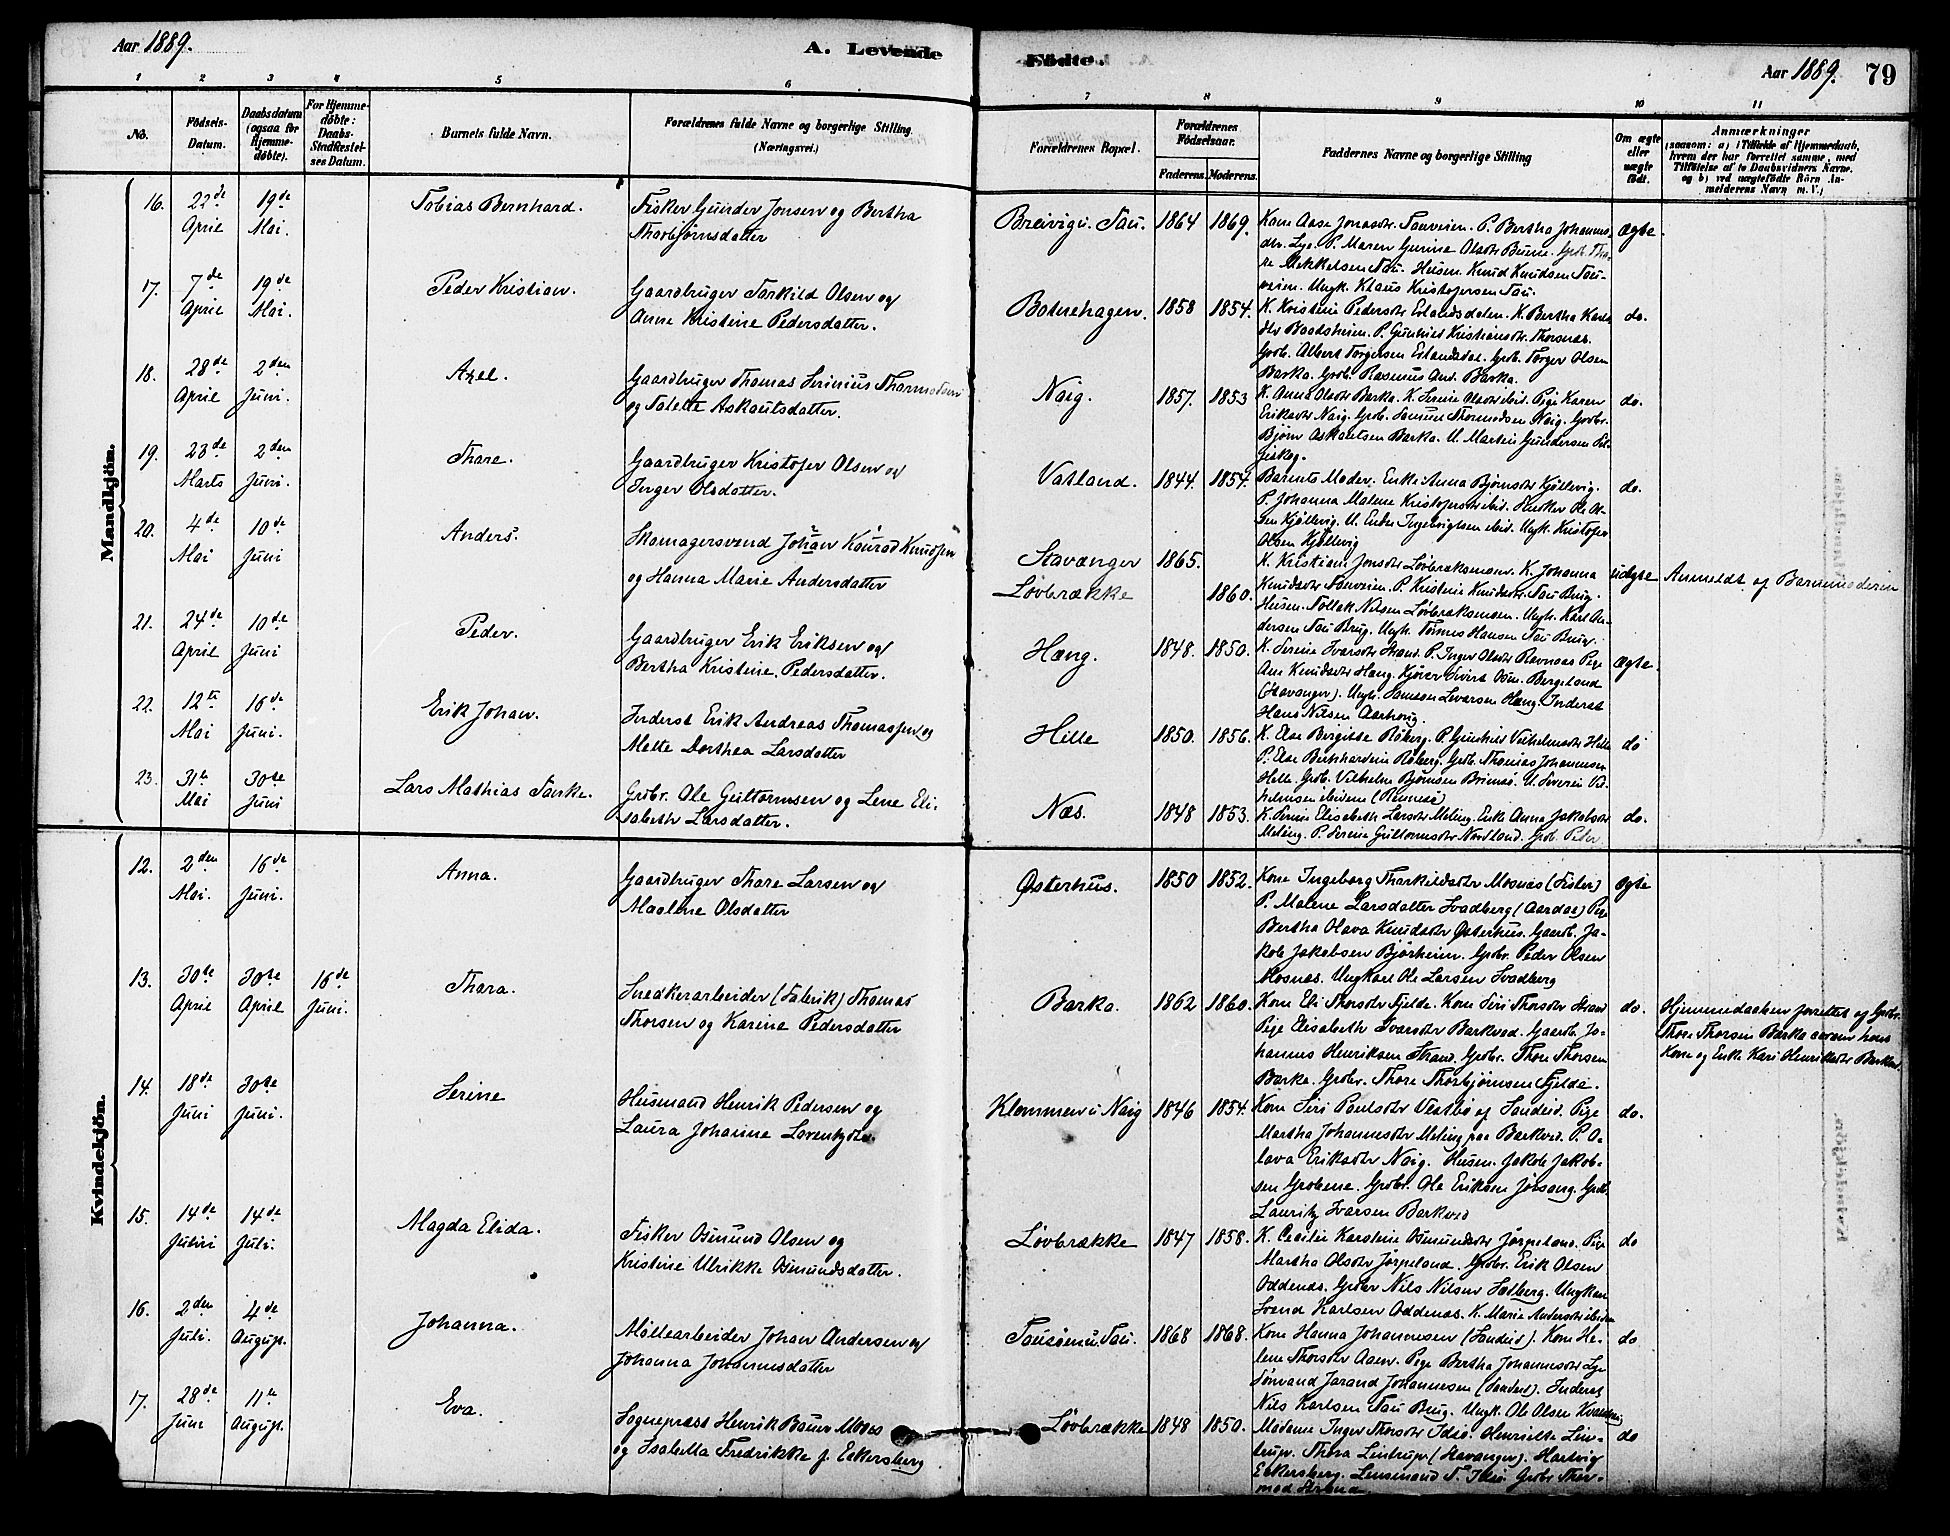 Aar 1889.
A. Levende
Fødte.
Aar 1889.
79
1 2 3 4 5 6 7 8 9 10 11
No.
Fødsels-Datum.
Daabsdatum (ogsaa for Hjemme-døbte).
For Hjemme-døbte: Daabs-Stadfæstel-ses Datum.
Barnets fulde Navn.
Forældrenes fulde Navne og borgerlige Stilling. (Næringsvei.)
Forældrenes Bopæl.
Forældrenes Fødselsaar.
Faderens. Moderens.
Faddernes Navne og borgerlige Stilling
Om ægte eller uægte født.
Anmærkninger
(saasom: a) i Tilfælde af Hjemmedaab,
hvem der har forrettet samme, med
Tilføielse af to Daabsvidners Navne.
og b) ved uægtefødte Børn An-
melderens Navn m. V.)
Mandkjön.
16. 22de April 19de Mai. Tobias Bernhard. Fisker Gunder Jonsen og Bertha
Thorbjørnsdatter
Breivig i Tau. 1864 1869. Kone Aase Jonasdtr. Tauveien. P. Bertha Johannes-
dtr. Lye. P. Maren Gurine Olsdtr Grdb.
Mikkelsen Tau. Husm. Knud Knudsen Tau-
veien. Ungk. Klaus Kristofersen Tau.
ægte.
17. 7de April 19de Mai. Peder Kristian. Gaardbruger Tarkild Olsen og
Anne Kristine Pedersdatter.
Botnehagen. 1858 1854. K. Kristine Pedersdtr Erlandsdalen. K. Bertha
P. Gunhild Kristiansdtr. Thorsnæs.
Grdb. Albert Torgersen Erlandsdal. Grdb. Torger Olsen
Barka. Grdb. Rasmus And. Barka.
do.
18. 28de April 2den Juni. Axel. Gaardbruger Thomas Serinius Thormodsen
og Talette Askautsdatter.
Naig. 1857. 1853 K. Anna Olsdtr Barka. K. Serine Olsdtr ibid. Pige Karen
Eriksdtr Naig. Grdb. Samuel Thormodsen Naig. Grdbr.
Bjørn Askautsen Barka. U. Martin Gundersen
do.
19. 23de Marts 2den Juni. Thore. Gaardbruger Kristofer Olsen og
Inger Olsdatter.
Vatland. 1844. 1854. Barnets Moder. Enke Anna Bjørnsdtr Kjøllevig.
P. Johanna Malene Kristofersdtr ibid. Ole Ol-
sen Kjøllevig. U. Endre Ingebrigtsen ibid. Ungk. Kristofer
Olsen Kjøllevig
do.
20. 4de Mai 10de Juni Anders. Skomagersvend Johan Konrad Knudsen
og Hanna Marie Andersdatter
Stavanger 1865.
Løvbrække 1860.
K. Kristian Jonsdtr Løvbræksmoen. K. Johanna
Knudsdtr Tauveien. P. Kristine Knudsdtr. Tau Brug.
Husm. Tollak Nilsen Løvbræksmoen. Ungk. Karl An-
dersen Tau Brug. Ungk. Tønnes Hansen Tau Brug.
uægte Anmeldt af Barnemoderen
21. 24de April 10de Juni Peder. Gaardbruger Erik Eriksen og
Bertha Kristine Pedersdatter.
Høng. 1848. 1850. K. Serine Ivarsdtr Strand. P. Inger Olsdtr Ravnaas Pige
Ane Knudsdtr Høng. Kjører Sivert Bergeland
(Stavanger). Ungk. Samson Høng. Inderst
Hans Nilsen
ægte.
22. 12te Mai 16de Juni. Erik Johan. Inderst Erik Andreas Thomassen og
Mette Dorthea Larsdatter
Hille 1850. 1856. K. Else Birgitte Røberg. P. Gunhild Vilhelmsdtr Hille
P. Else Bernhardine Røberg. Grdb. Thomas Johannesen
Hille. Grdb. Vilhelm Bjørnsen Brimsø. U. Severin Vil-
helmsen ibidem (Rennesø)
do
23. 31te Mai 30te Juni Lars Mathias Tanke. Grdbr. Ole Guttormsen og Lene Eli-
sabeth Larsdatter.
Næs. 1848 1853. K. Serine Elisabeth Larsdtr Meling. Enke Anna Jakobsdtr
Meling. P. Serine Guttormsdtr Nordland. Grdb. Peder
do.
Kvindekjön.
12. 2den Mai. 16de Juni. Anna. Gaardbruger Thore Larsen og
Malene Olsdatter
Østerhus. 1850 1852. Kone Ingeborg Tharkildsdtr Mosnæs (Fister)
P. Malene Larsdatter Svadberg (Aardal) Pige
Bertha Olava Knudsdtr Østerhus. Gaardb. Ja-
kob Jakobsen Bjørheim. Grdbr. Peder Olsen
Mosnæs. Ungkarl Ole Larsen Svadberg
ægte
13. 30te April 30te April 16de Juni. Thora. Snedkerarbeider (Fabrik) Thomas
Thorsen og Karine Pedersdatter
Barka. 1862 1860. Kone Eli Thorsdtr Fjelde. Kone Siri Thorsdtr Strand
Pige Elisabeth Ivarsdtr Barkved. Gaardb. Jo-
hannes Henriksen Strand. Grdbr. Thore Thorsen
Barka. Grdbr. Thore Thorbjørnsen Fjelde.
do. Hjemmedaaben forrettet af Grdbr.
Thore Thorsen Barka hans
Kone og Enke Kari Henriksdtr Barka
14. 18de Juni 30te Juni. Serine Husmand Henrik Pedersen og
Laura Johanne Lorentzdtr.
Klommen i Naig 1846 1854. Kone Siri Poulsdtr Vestbø af Sandeid. Pige
Martha Johannesdtr Meling paa Barkved. P. O-
lava Eriksdtr Naig. Husm. Jakob Jakob-
sen Grdbr. Ole Eriksen Jøssang. Grdb.
Lauritz Ivarsen Barkved
do.
15. 14de Juni 14de Juli. Magda Elida. Fisker Osmund Olsen og
Kristine Ulrikke Osmundsdatter.
Løvbrække 1847 1858. K. Cecilie Karstine Osmundsdtr Jørpeland. Pige
Martha Olsdtr Jørpeland. Grdbr. Erik Olsen
Oddenæs. Grdbr Nils Nilsen Solberg. Ungkarl
Svend Karlsen Oddenæs. K. Marie Andersdtr ibidem
do
16. 2den Juli. 4de August. Johanna. Møllearbeider Johan Andersen og
Johanna Johannesdatter
Tau. 1868 1868. Kone Hanna Johannesen (Sandeid). Kone He-
lene Thorsdtr Pige Bertha Johannesdtr Lye
Sømand Jorand Johannesen (Sandeid). Inderst
Nils Karlsen Tau Brug. Ungk. Ole Olsen
do
17. 28de Juni 11te August. Eva. Sogneprest Henrik Bauer
og Isabella Fredrikke f. Eckersberg
Løvbrække 1848 1850. Madame Inger Thorsdtr Idsø. Henriette Lin-
trup. Thora Lintrup (Stavanger). Hartvig
Eckersberg. Lensmand T. Idsø. Grdbr Thor-
mod Strand.
do